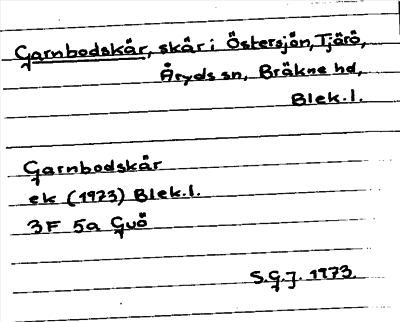 Garnbodskär, skär i Östersjön, Tjärö,
Åryds sn, Bräkne hd,
Blek.l.
Garnbodskär
ek (1973) Blek.l.
3F 5a Guö
S.G.J. 1973.